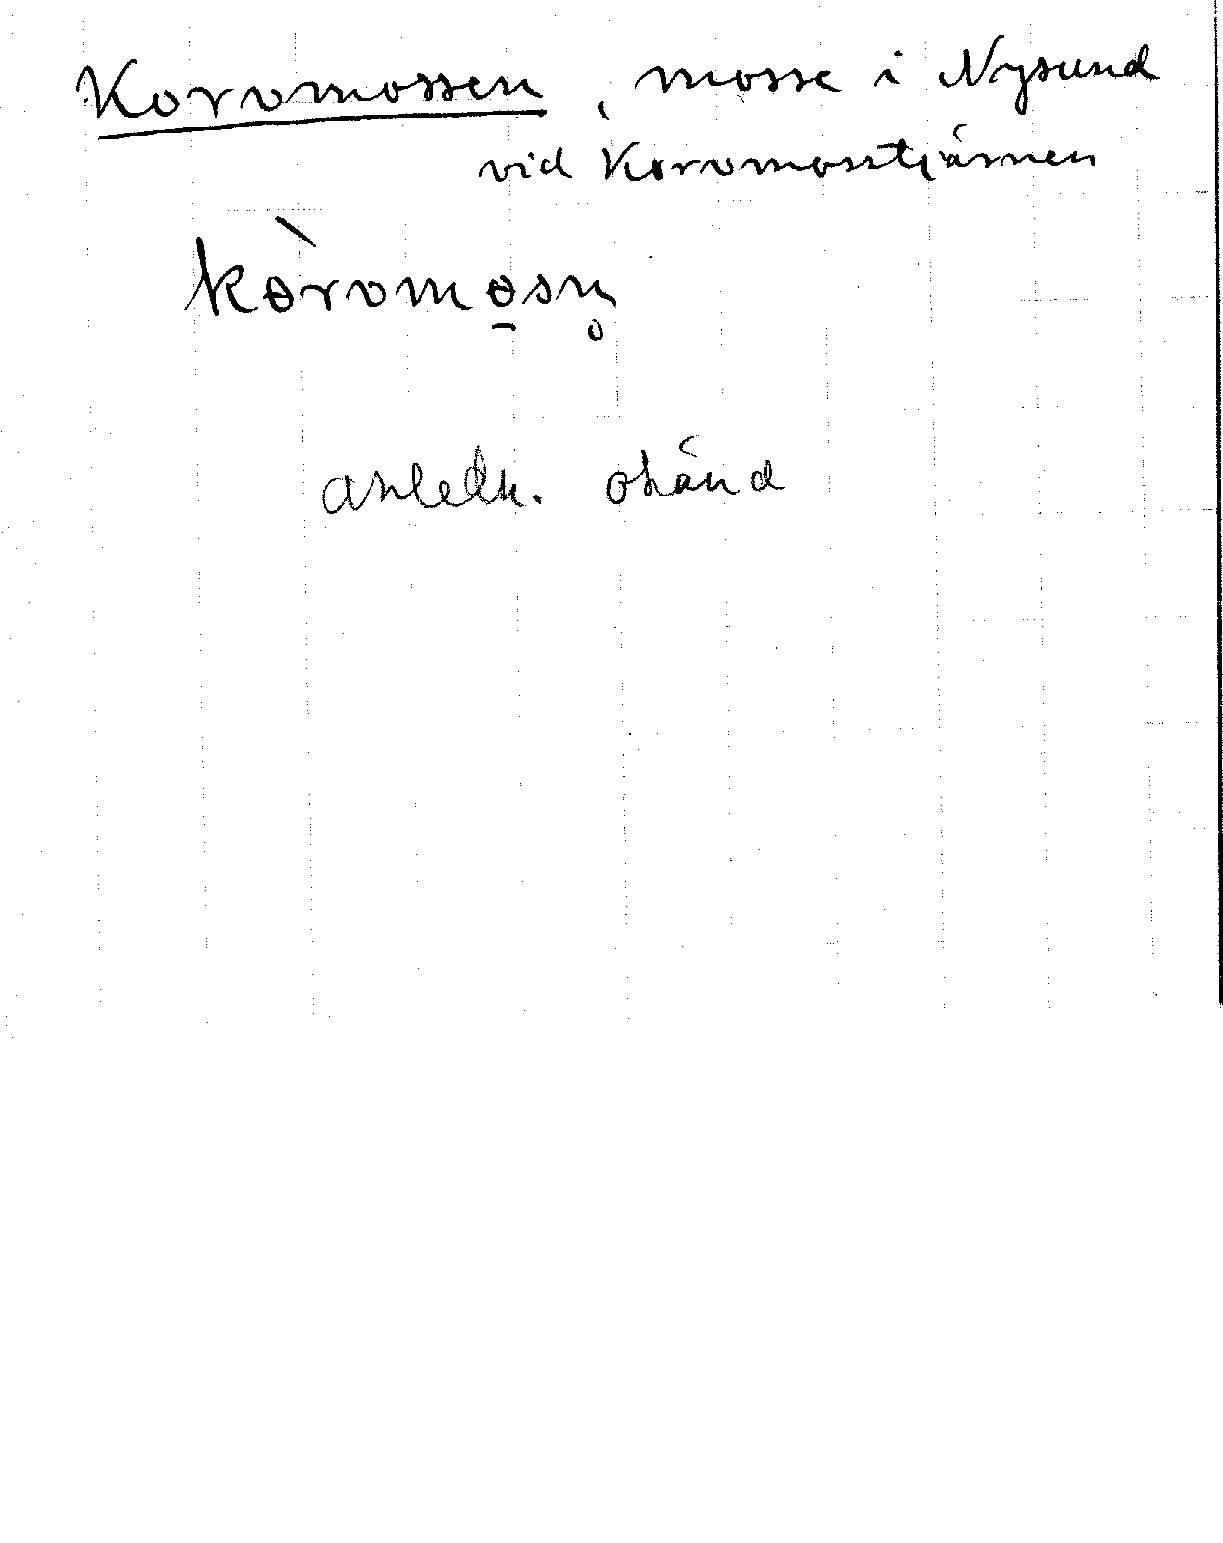 Korvmossen, mosse i Nysund
vid Korvmosstjärnen
kɵ̀rvmɵ̠sn̥
anledn. okänd